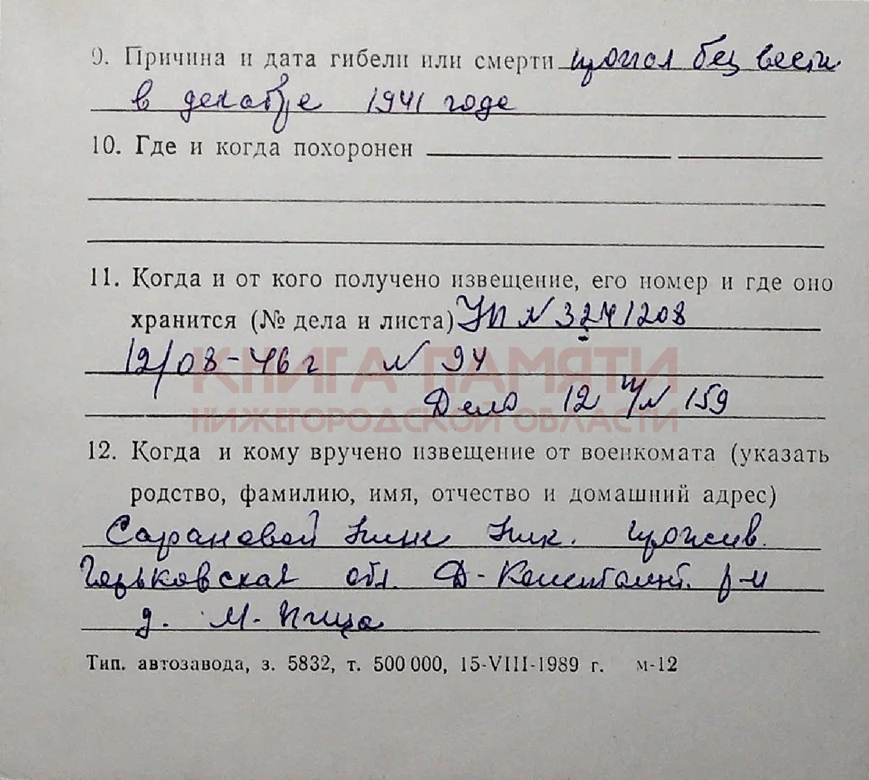 9. Причина и дата гибели или смерти пропал без вести
в декабре 1941 годе
10. Где и когда похоронен
11. Когда и от кого получено извещение, его номер и где оно
хранится (№ дела и листа) УП № 3241208
12/08-46 г № 94
КНИГА ПАМЯТИ
Дело 12 №159
НИЖЕГОРОДСКОЙ ОБЛАСТИ
12. Когда и кому вручено извещение от военкомата (указать
родство, фамилию, имя, отчество и домашний адрес)
Сарановой Нине Ник. прожив.
Горьковская обл. Д-Константин. р-н
д. М-Пица
Тип. автозавода, з. 5832, т. 500 000, 15-VIII-1989 г. м-12